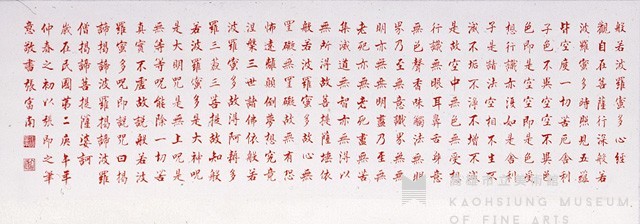 般若波羅蜜多心經
觀自在菩薩行深般若
波羅蜜多時照見五蘊
皆空度一切苦厄舍利
子色不異空空不異色
色即是空空即是色受
想行識亦復如是舍利
子是諸法空相不生不
滅不垢不淨不增不減
是故空中無色無受想
行識無眼耳鼻舌身意
無色聲香味觸法無眼
界乃至無意識界無無
明亦無無明盡乃至無
老死亦無老死盡無苦
集滅道無智亦無得以
無所得故菩提薩埵依
般若波羅蜜多故心無
罣礙無罣礙故無有恐
怖遠離顛倒夢想究竟
涅槃三世諸佛依般若
波羅蜜多故得阿耨多
羅三藐三菩提故知般
若波羅蜜多是大神咒
是大明咒是無上咒是
無等等咒能除一切苦
真實不虛故說般若波
羅蜜多咒即說咒曰揭
諦揭諦波羅揭諦波羅
僧揭諦菩提薩婆訶
歲在民國第二庚午年
仲春之初以張即之筆
意敬書張富南
高雄市立美術館
KAOHSIUNG MUSEUM
OF FINE ARTS